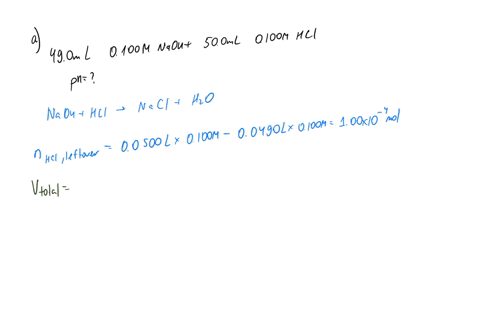 a) 49.0mL 0.100M NaOH + 50.0mL 0.100M HCl
pH = ?
NaOH + HCl → NaCl + H₂O
n HCl, leftover = 0.0500L × 0.100M − 0.0490L × 0.100M = 1.00×10⁻⁴ mol
Vtotal =